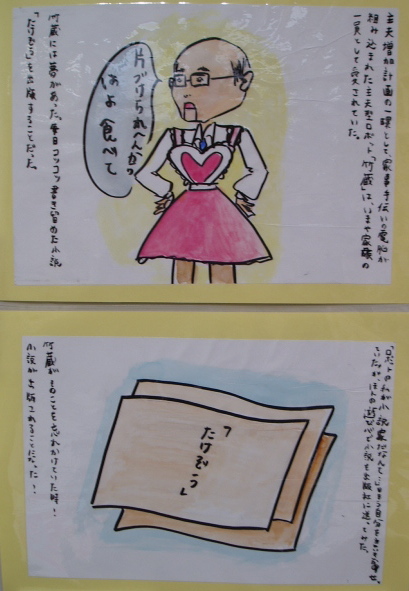 主夫増加計画の一環として、家事手伝いの電脳が
組み込まれた主夫型ロボット「竹蔵」は、いまや家族の
一員として愛されていた。
片づけられへんからっ
はよ食べて
竹蔵には夢があった。毎日コツコツ書き留めた小説
「たけぞう」を出版することだった。
「ロボットの私が小説家だなんて…」
ほんの遊び心で小説を出版社に送ってみた。
「たけぞう」
竹蔵がそのことを忘れかけていた時!
小説が出版されることになった!